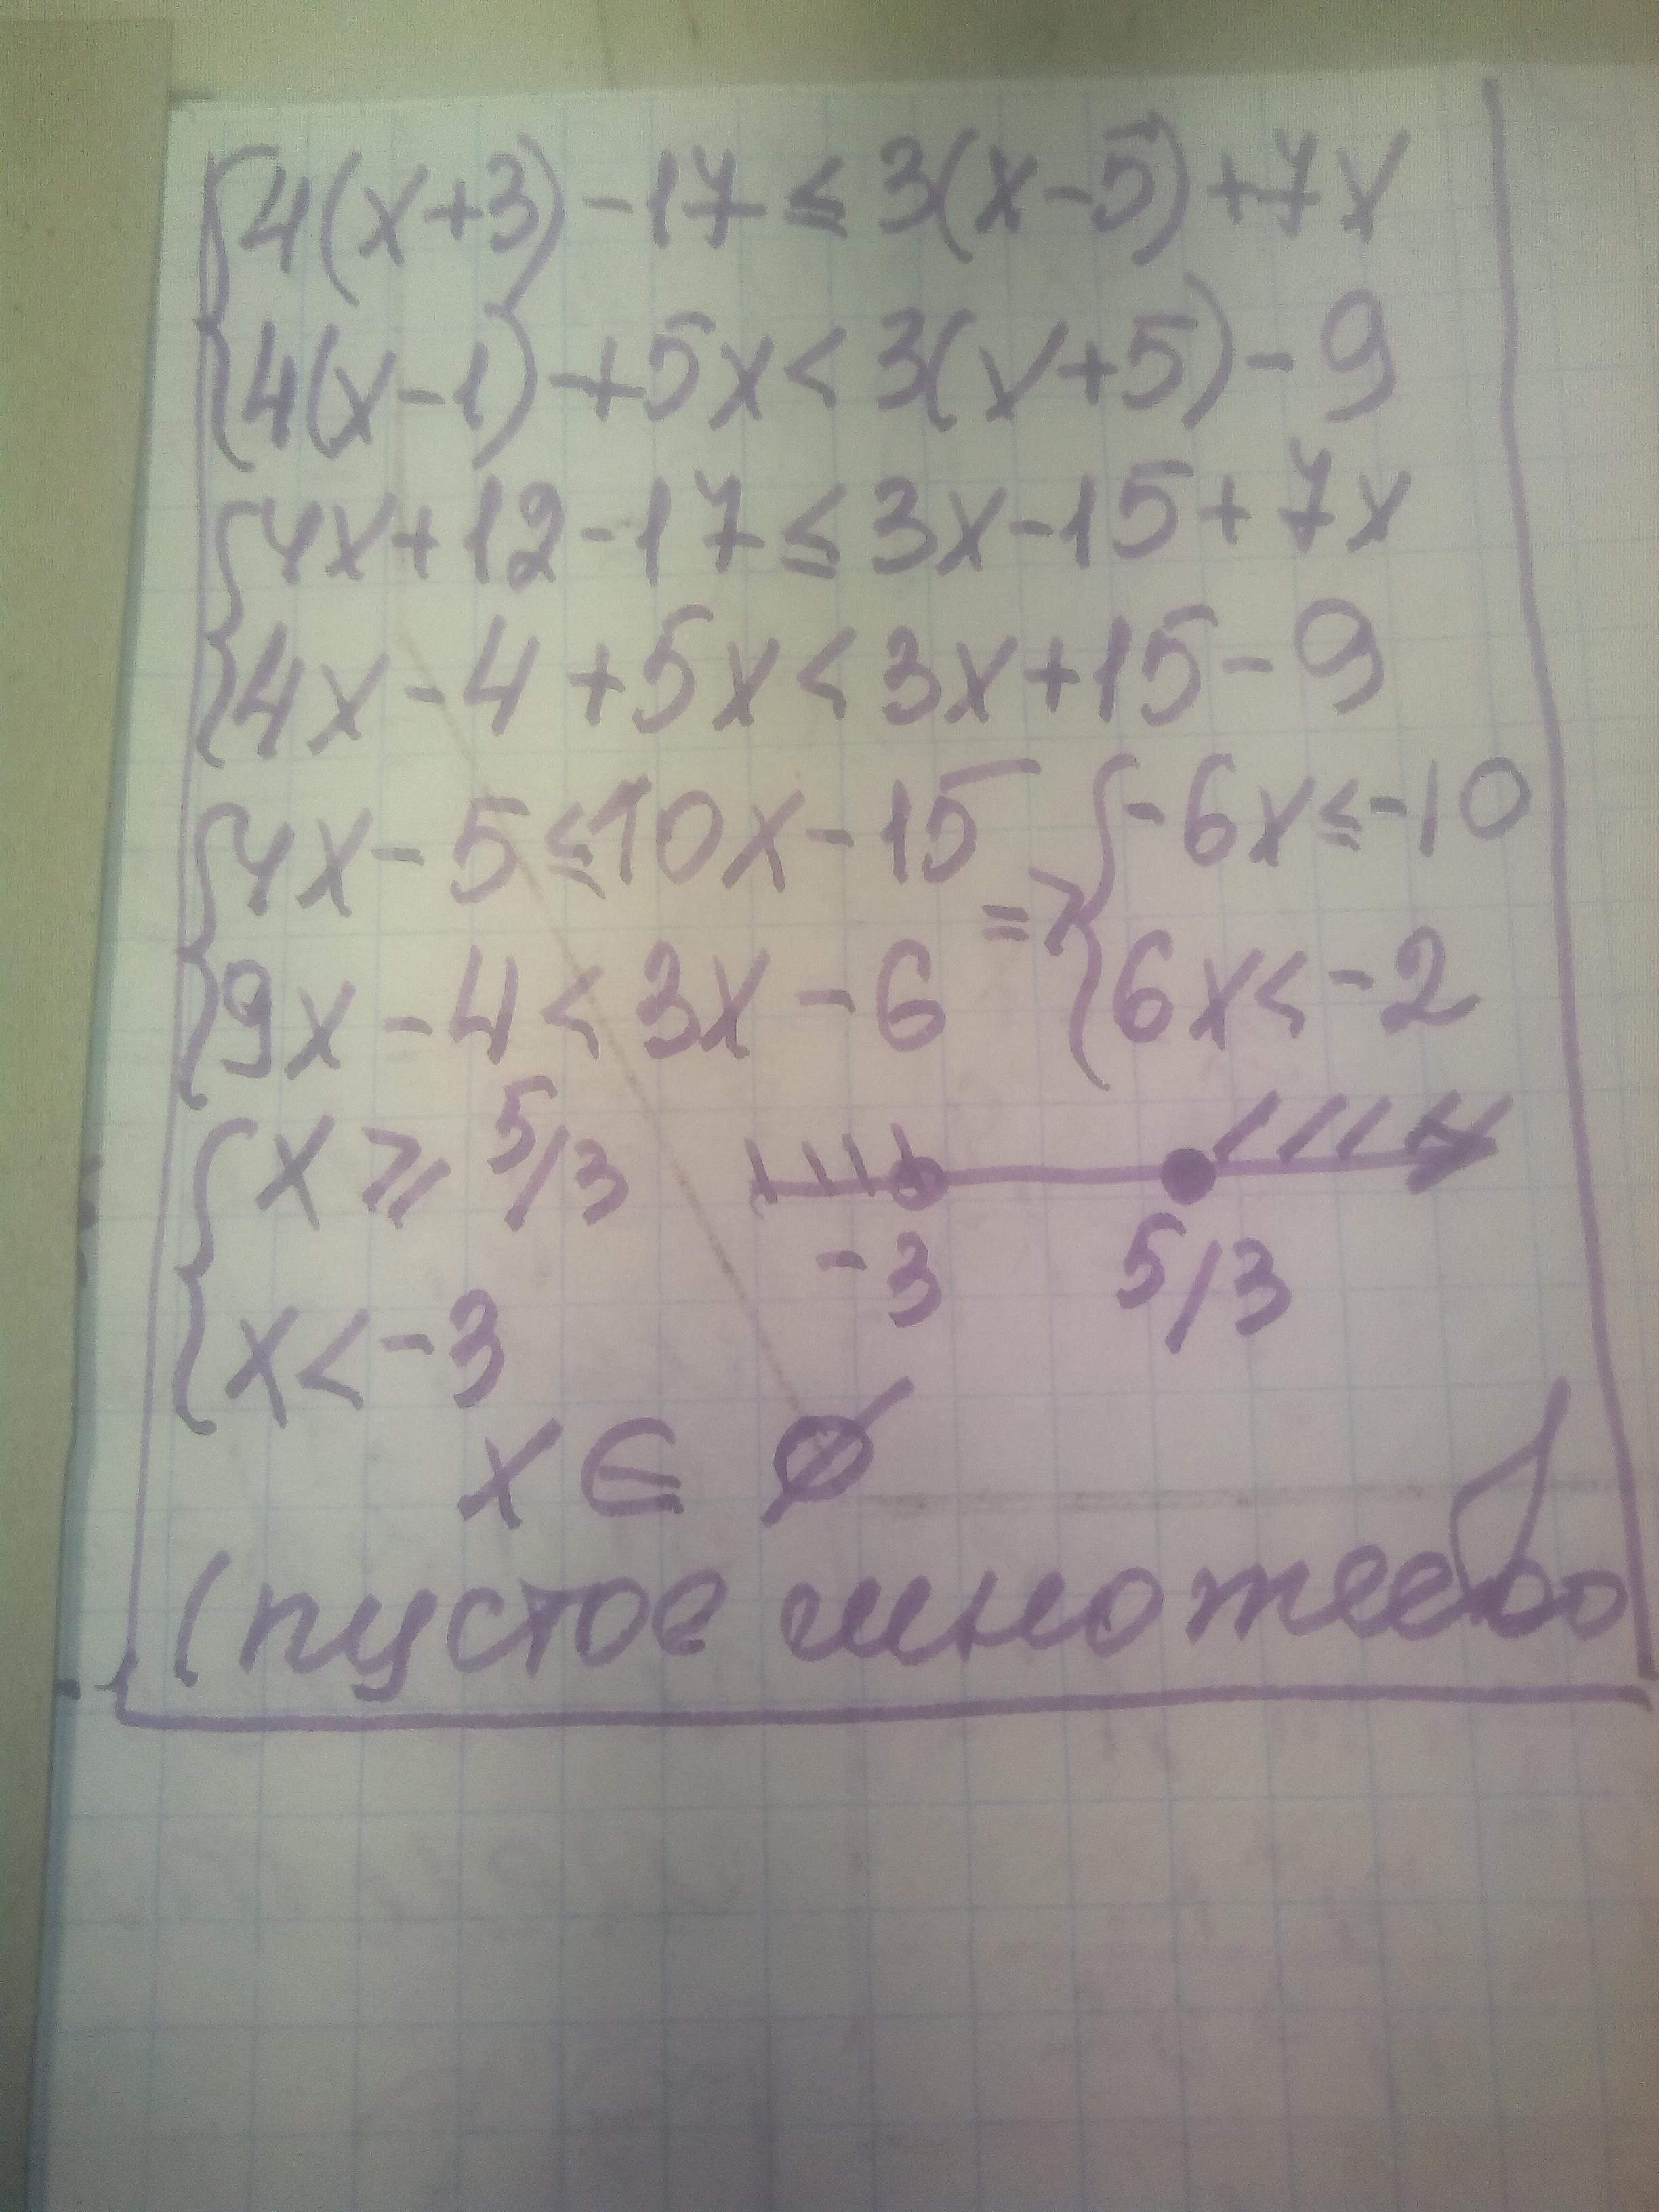 {4(x+3)-17≤3(x-5)+7x
{4(x-1)+5x<3(x+5)-9
{4x+12-17≤3x-15+7x
{4x-4+5x<3x+15-9
{4x-5≤10x-15 => {-6x≤-10
{9x-4<3x-6 {6x<-2
{x≥5/3
{x<-3
-3 5/3
x∈∅
(пустое множество